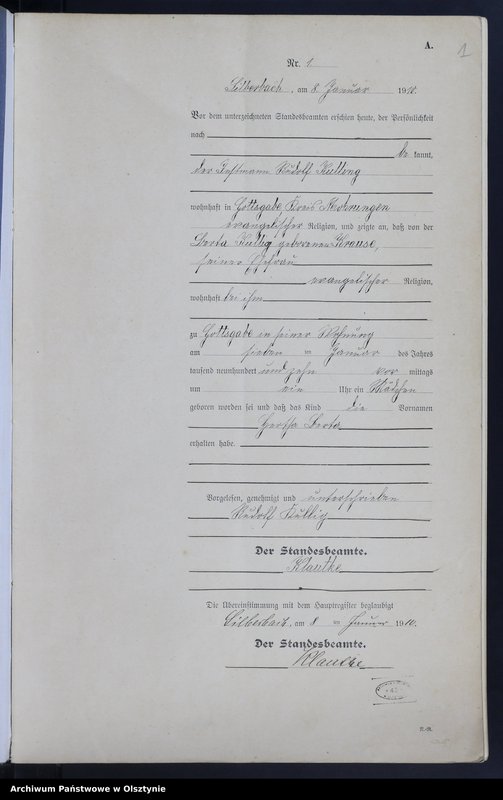 A.
1
Nr. 1
Silberbach, am 8 Januar 1910.
Vor dem unterzeichneten Standesbeamten erschien heute, der Persönlichkeit
nach
be kannt,
der Instmann Rudolf
wohnhaft in Gottsgabe Kreis Mohrungen
evangelischer Religion, und zeigte an, daß von der
Berta geborenen Krause,
seiner Ehefrau
evangelischer Religion,
wohnhaft bei ihm
zu Gottsgabe in seiner Wohnung
am sieben ten Januar des Jahres
tausend neunhundert und zehn vor mittags
um ein Uhr ein Mädchen
geboren worden sei und daß das Kind die Vornamen
Hertha Berta
erhalten habe.
Vorgelesen, genehmigt und unterschrieben
Rudolf
Der Standesbeamte.
Klautke
Die Übereinstimmung mit dem Hauptregister beglaubigt
Silberbach, am 8 ten Januar 1910.
Der Standesbeamte.
Klautke
Archiwum Państwowe w Olsztynie